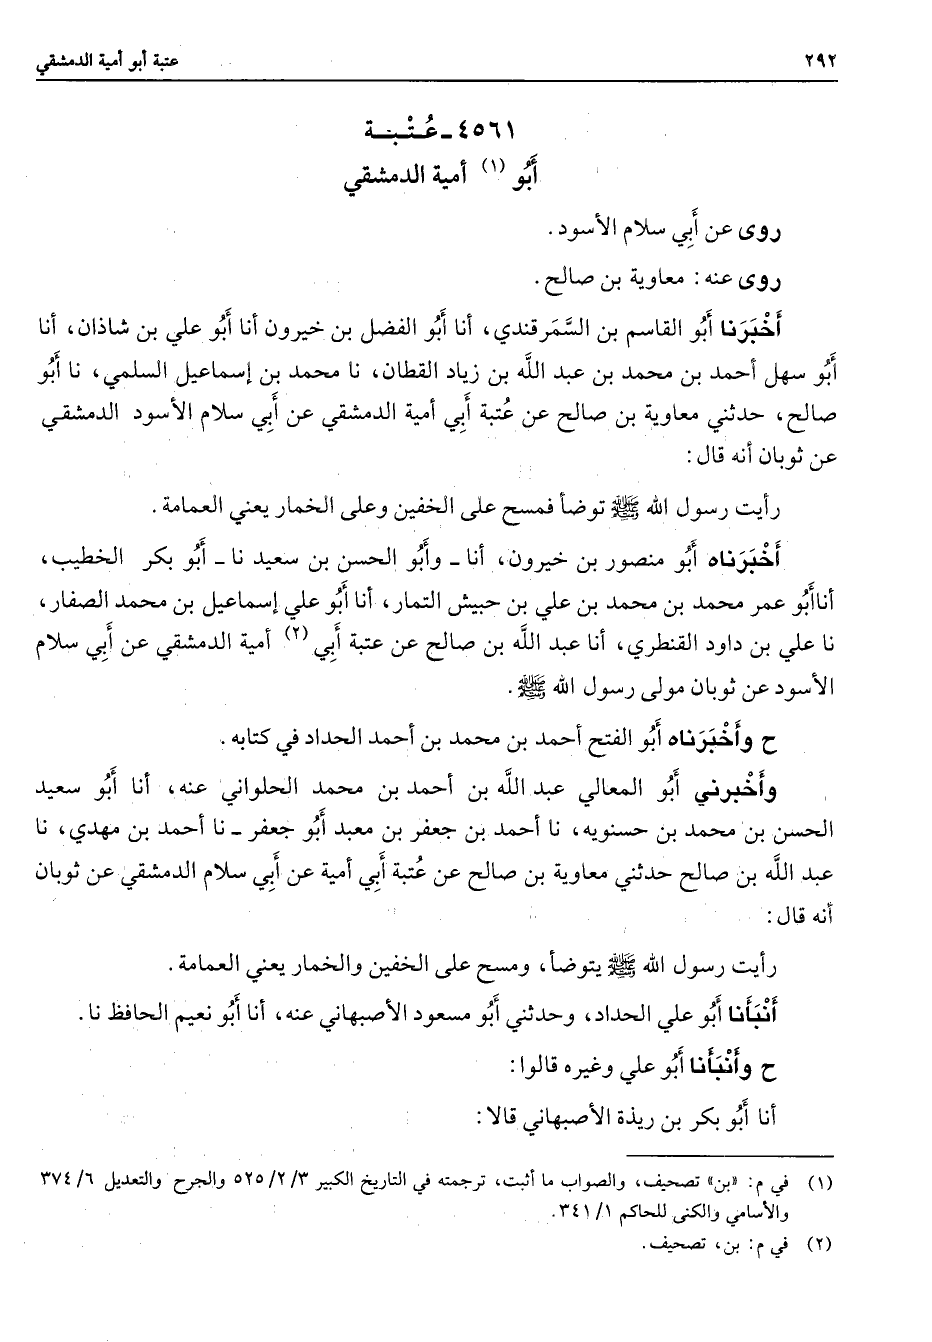 ٢٩٢
عتبة أبو أمية الدمشقي
٤٥٦١ ـ عُـتْـبـة
أَبُو (١) أمية الدمشقي
روى عن أَبِي سلام الأسود.
روى عنه: معاوية بن صالح.
أَخْبَرَنا أَبُو القاسم بن السَّمَرقندي، أنا أَبُو الفضل بن خيرون أنا أَبُو علي بن شاذان، أنا
أَبُو سهل أحمد بن محمد بن عبد اللَّه بن زياد القطان، نا محمد بن إسماعيل السلمي، نا أَبُو
صالح، حدثني معاوية بن صالح عن عُتبة أَبِي أمية الدمشقي عن أَبِي سلام الأسود الدمشقي
عن ثوبان أنه قال:
رأيت رسول الله ﷺ توضأ فمسح على الخفين وعلى الخمار يعني العمامة.
أَخْبَرَناه أَبُو منصور بن خيرون، أنا ـ وأَبُو الحسن بن سعيد نا ـ أَبُو بكر الخطيب،
أناأَبُو عمر محمد بن محمد بن علي بن حبيش التمار، أنا أَبُو علي إسماعيل بن محمد الصفار،
نا علي بن داود القنطري، أنا عبد اللَّه بن صالح عن عتبة أَبِي (٢) أمية الدمشقي عن أَبِي سلام
الأسود عن ثوبان مولى رسول الله ﷺ.
ح وأَخْبَرَناه أَبُو الفتح أحمد بن محمد بن أحمد الحداد في كتابه.
وأَخْبرني أَبُو المعالي عبد اللَّه بن أحمد بن محمد الحلواني عنه، أنا أَبُو سعيد
الحسن بن محمد بن حسنويه، نا أحمد بن جعفر بن معبد أَبُو جعفر ـ نا أحمد بن مهدي، نا
عبد اللَّه بن صالح حدثني معاوية بن صالح عن عُتبة أَبِي أمية عن أَبِي سلام الدمشقي عن ثوبان
أنه قال:
رأيت رسول الله ﷺ يتوضأ، ومسح على الخفين والخمار يعني العمامة.
أَنْبَأَنا أَبُو علي الحداد، وحدثني أَبُو مسعود الأصبهاني عنه، أنا أَبُو نعيم الحافظ نا.
ح وأَنْبَأَنا أَبُو علي وغيره قالوا:
أنا أَبُو بكر بن ريذة الأصبهاني قالا:
(١) في م: «بن» تصحيف، والصواب ما أثبت، ترجمته في التاريخ الكبير ٣/ ٢/ ٥٢٥ والجرح والتعديل ٦/ ٣٧٤
والأسامي والكنى للحاكم ١/ ٣٤١.
(٢) في م: بن، تصحيف.